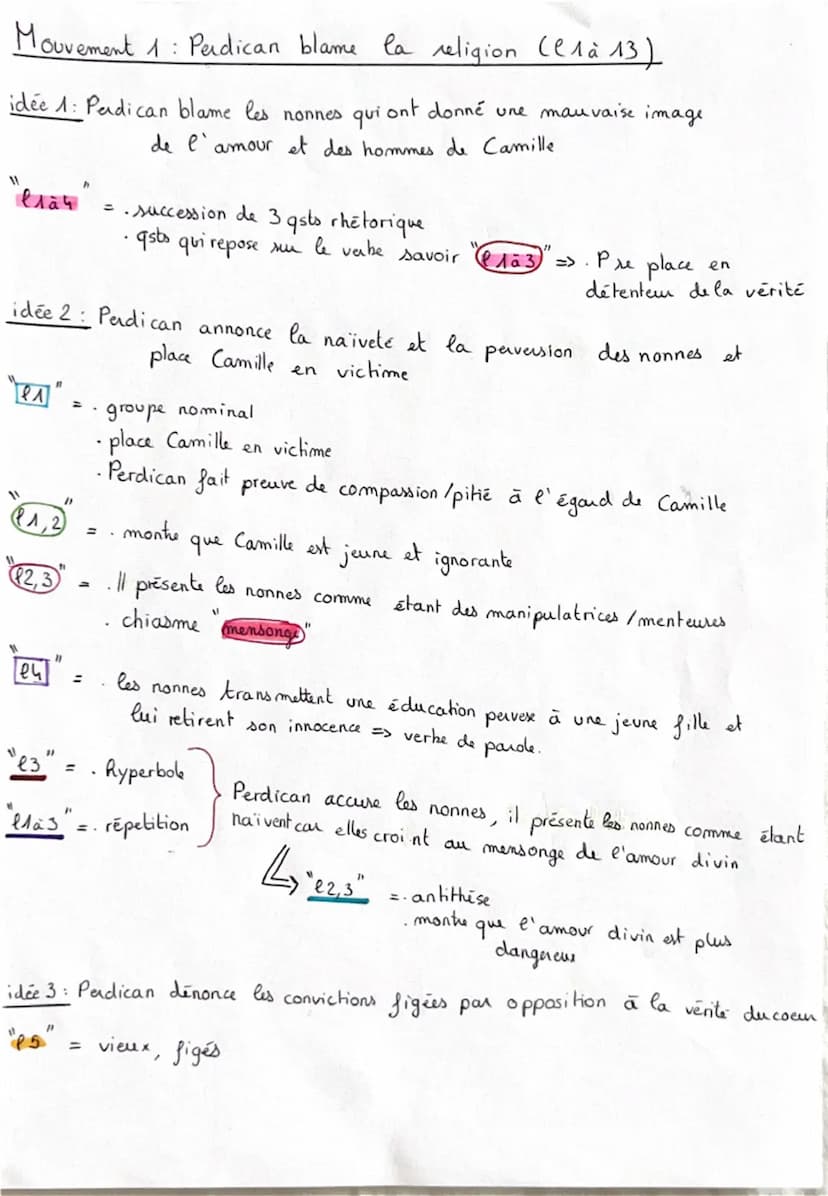 Mouvement 1 : Perdican blame la religion (l1à 13)
idée 1: Perdican blame les nonnes qui ont donné une mauvaise image
de l'amour et des hommes de Camille
"l1à4" = . succession de 3 qsts rhétorique
. qsts qui repose sur le verbe savoir "l1à3" => . P se place en
détenteur de la vérité
idée 2 : Perdican annonce la naïveté et la perversion des nonnes et
place Camille en victime
"l1" = . groupe nominal
. place Camille en victime
. Perdican fait preuve de compassion/pitié à l'égard de Camille
"l1,2" = . montre que Camille est jeune et ignorante
"l2,3" = . Il présente les nonnes comme étant des manipulatrices/menteures
. chiasme "mensonge"
"l4" = . les nonnes transmettent une éducation perverse à une jeune fille et
lui retirent son innocence => verbe de parole.
"l3" = . Hyperbole
"l1à3" = . répetition
Perdican accuse les nonnes, il présente les nonnes comme étant
naïvent car elles croint au mensonge de l'amour divin
"l2,3" = . antithèse
. montre que l'amour divin est plus
dangereux
idée 3 : Perdican dénonce les convictions figées par opposition à la vérité du coeur
"l5" = vieux, figés